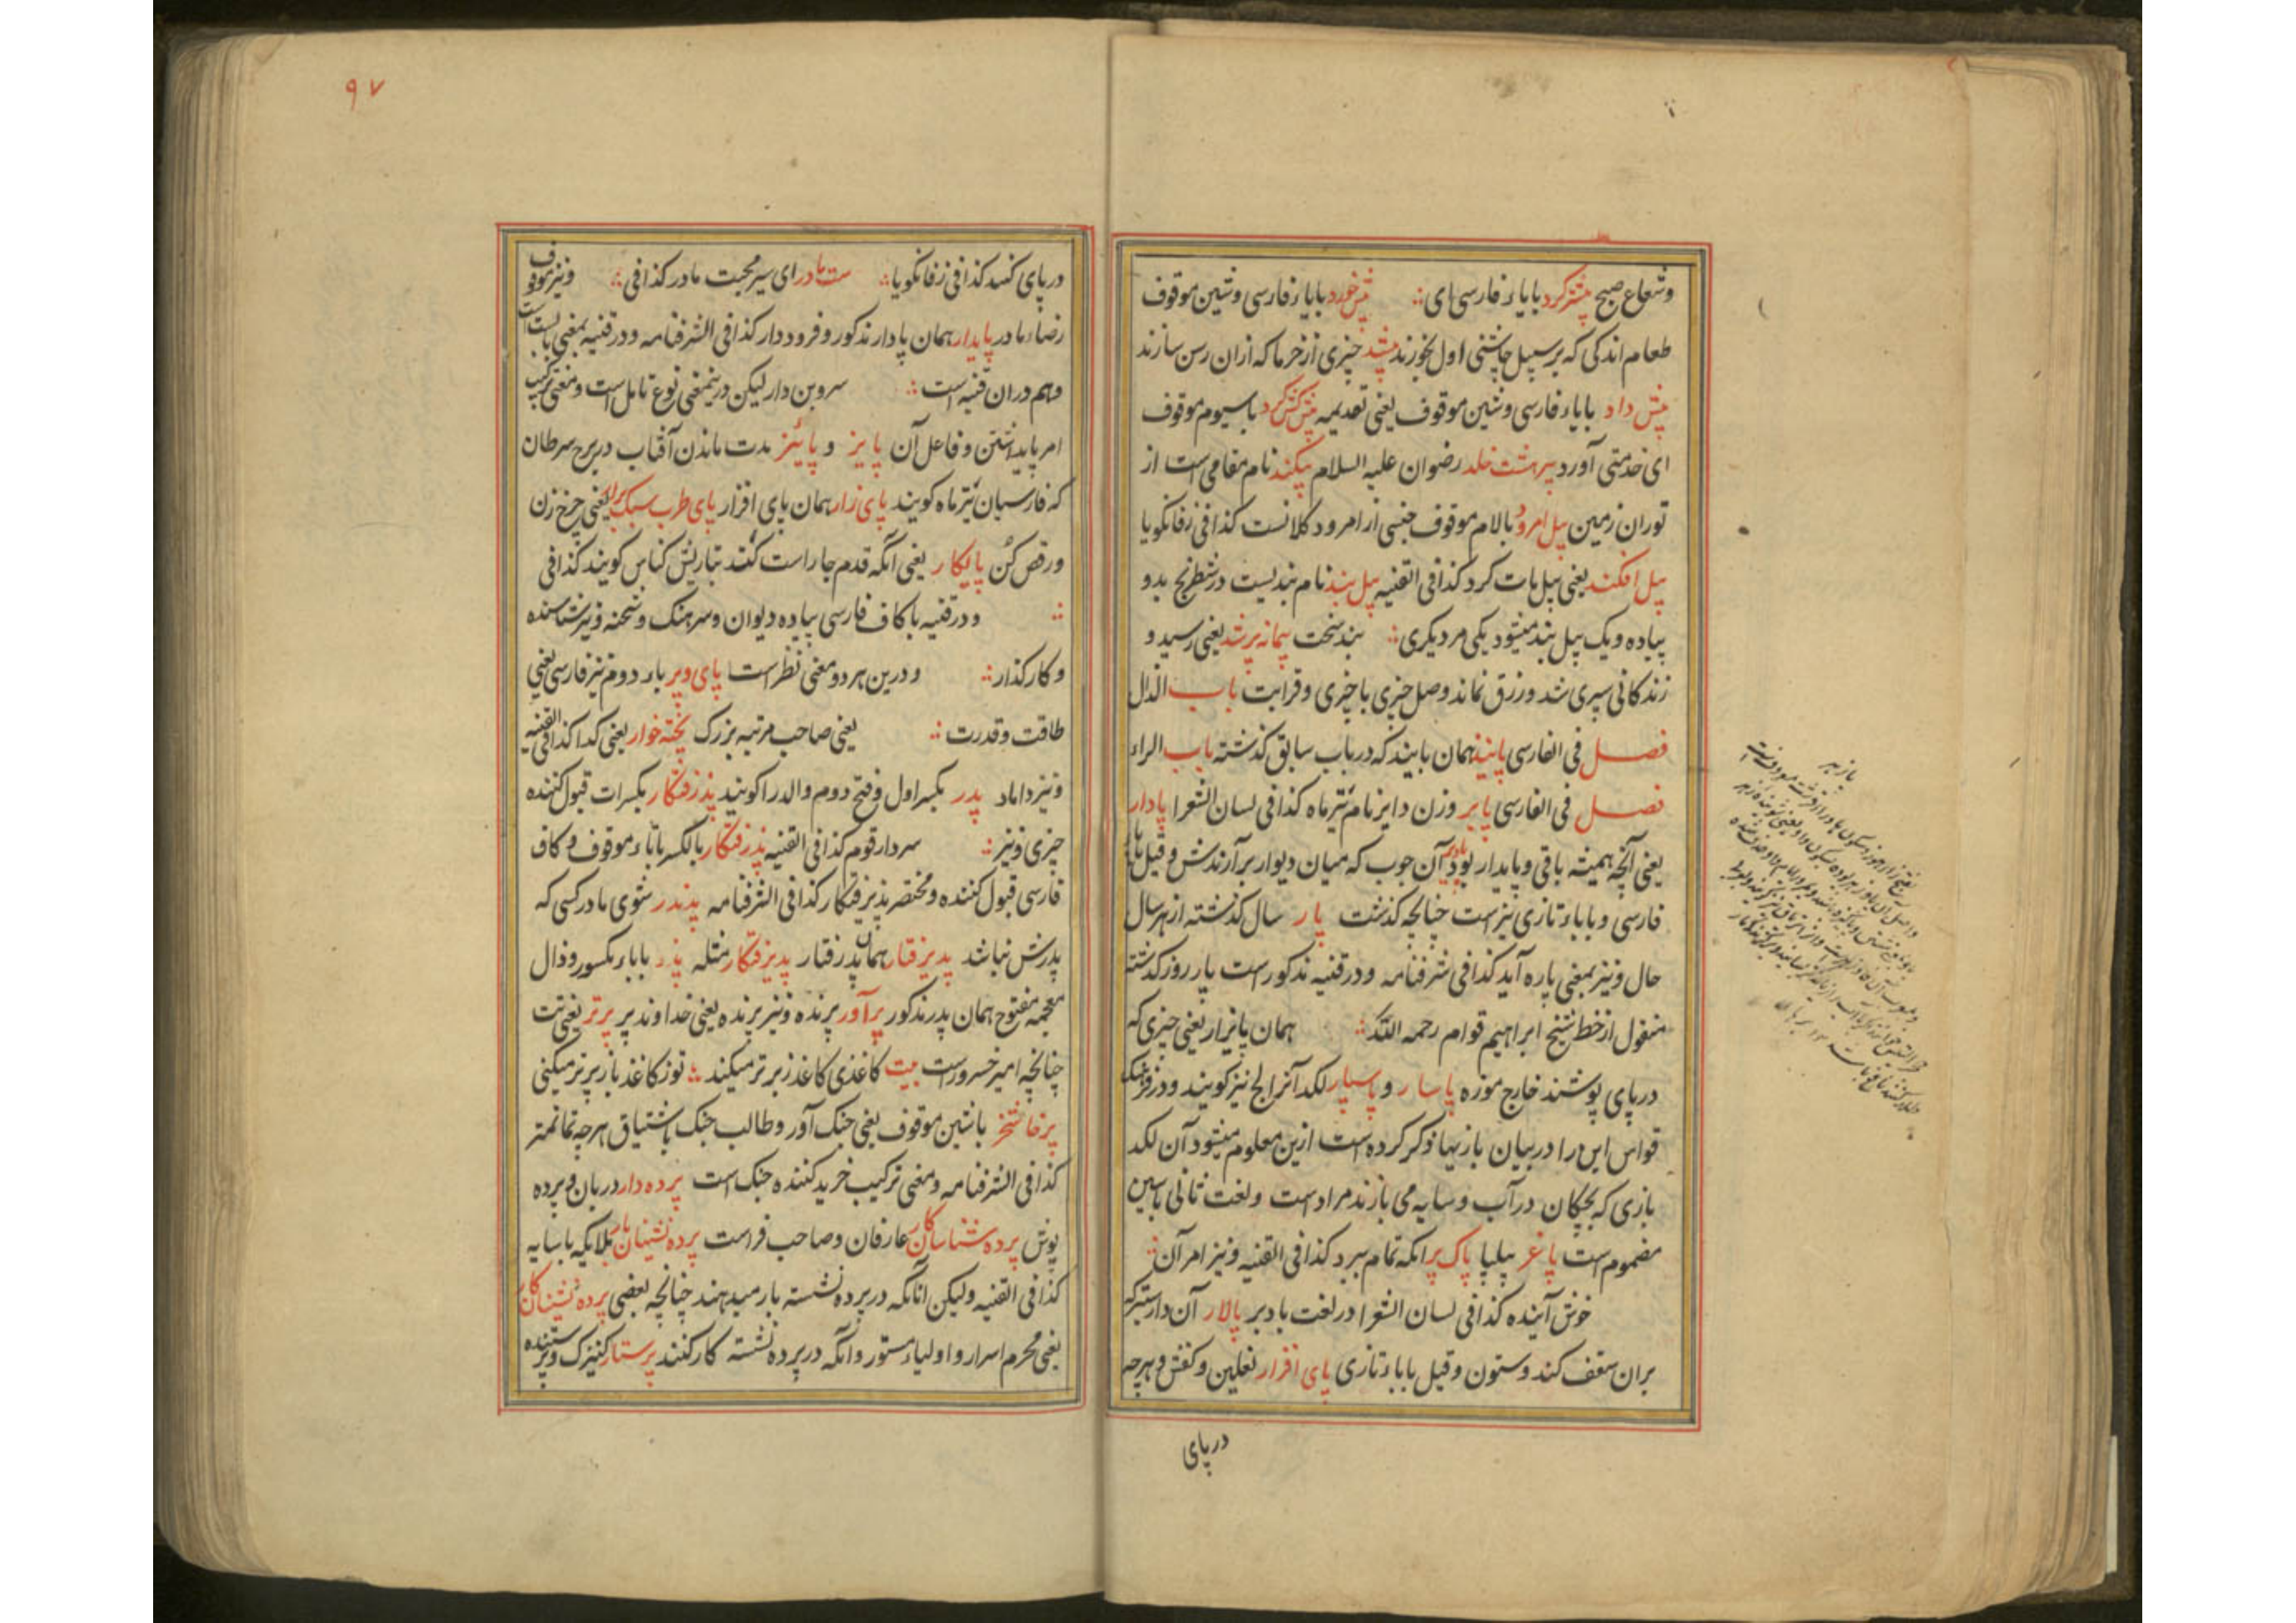 وشعاع صبح پیشتر کرد بابای فارسی ای ∴ پیش خورد بابای فارسی وشین موقوف
طعام اندکی که بر سبیل چاشنی اول بخورند پیشند چیزی از خرما که ازان رسن سازند
پیش داد بابای فارسی وشین موقوف یعنی تقدیمه پیش کش کرد با سیوم موقوف
ای خدمتی آورد پیر هشت خلد رضوان علیه السلام پیکند نام مقامی است از
توران زمین پیل امرود بالام موقوف جنسی از امرود کلانست کذا فی زفانکویا
پیل افکند یعنی پیل مات کرد کذا فی القنیه پیل بند نام بندیست در شطرنج بدو
پیاده ویک پیل بند میشود یکی مر دیکری ∴ بند سخت پیمانه پر شد یعنی رسید و
زندکانی سپری شد ورزق نماند وصل چیزی با چیزی وقرابت باب الذال
فصل فی الفارسی پانیذ همان پانید که در باب سابق کذشته باب الراء
فصل فی الفارسی پایر وزن دایر نام تیر ماه کذا فی لسان الشعرا پادار
یعنی آنچه همیشه باقی وپایدار بود پادیر آن چوب که میان دیوار بر آرندش وقیل بای
فارسی وباباء تازی نیز است چنانچه کذشت پار سال کذشته از هر سال
حال ونیز بمعنی پاره آید کذا فی شرفنامه ودر قنیه مذکور است پار روز کذشته
منقول از خط شیخ ابراهیم قوام رحمه الله ∴ همان پانزار یعنی چیزی که
در پای پوشند خارج موزه پاسار و پاسپار لکد آنرا لج نیز کویند ودر فرهنک
قواس این را در بیان بازیها ذکر کرده است ازین معلوم میشود آن لکد
بازی که بچکان در آب وسایه می بازند مراد است ولغت ثانی باسین
مضموم است پاغر پیلپا پاک بر انکه تمام ببرد کذا فی القنیه ونیز امر آن ∴
خوش آینده کذا فی لسان الشعرا در لغت بادبر پالار آن دار ستبر که
بران سقف کند وستون وقیل باباء تازی پای افزار نعلین وکفش وهرچه
در پای
۹۷
در پای کنند کذا فی زفانکویا ∴ ست مادر ای سیر محبت مادر کذا فی ∴ ونیز موقوف
رضاء مادر پایدار همان پادار مذکور وفرود دار کذا فی الشرفنامه ودر قنیه بمعنی بابست است
وهم دران قنیه است ∴ سروبن دار لیکن درینمعنی نوع تامل است ومعنی ترکیب
امر پاید اشتن وفاعل آن پایز و پائیز مدت ماندن آفتاب در برج سرطان
که فارسیان تیر ماه کویند پای زار همان پای افزار پای طرب سبک برار یعنی چرخ زن
ورقص کن پایکار یعنی آنکه قدم جا راست کند بتازیش کناس کویند کذا فی
∴ ودر قنیه با کاف فارسی پیاده دیوان وسرهنک وشحنه ونیز شناسنده
وکار کذار ∴ ودرین هر دو معنی نظر است پای وپر باء دوم نیز فارسی یعنی
طاقت وقدرت ∴ یعنی صاحب مرتبه بزرک پخته خوار یعنی کدا کذا فی القنیه
ونیز داماد پدر بکسر اول وفتح دوم والد را کویند پذرفتکار بکسرات قبول کننده
چیزی ونیز ∴ سردار قوم کذا فی القنیه پذرفتکار بالکسر باتاء موقوف وکاف
فارسی قبول کننده ومختصر پذیرفتکار کذا فی الشرفنامه پدندر شوی مادر کسی که
پدرش نباشد پذیرفتار همان پذرفتار پذیرفتکار مثله پذر باباء مکسور وذال
معجمه مفتوح همان پدر مذکور پرآور پرنده ونیز پرنده یعنی خداوند پر پرتر یعنی نیت
چنانچه امیر خسرو راست بیت کاغذی کاغذ زبر تر میکند ∴ توز کاغذ باز پر تر میکنی
پرخاشخر باشین موقوف یعنی جنک آور وطالب جنک باشتیاق هرچه تمامتر
کذا فی الشرفنامه ومعنی ترکیب خرید کننده جنک است پرده دار دربان وپرده
پوش پرده شناسان کار عارفان وصاحب فراست پرده نشینان بار ملایکه باسایه
کذا فی القنیه ولیکن آنانکه در پرده نشسته بار میدهند چنانچه بعضی پرده نشینان کار
یعنی محرم اسرار واولیاء مستور وآنکه در پرده نشسته کار کنند پرستار کنیزک وپرستنده